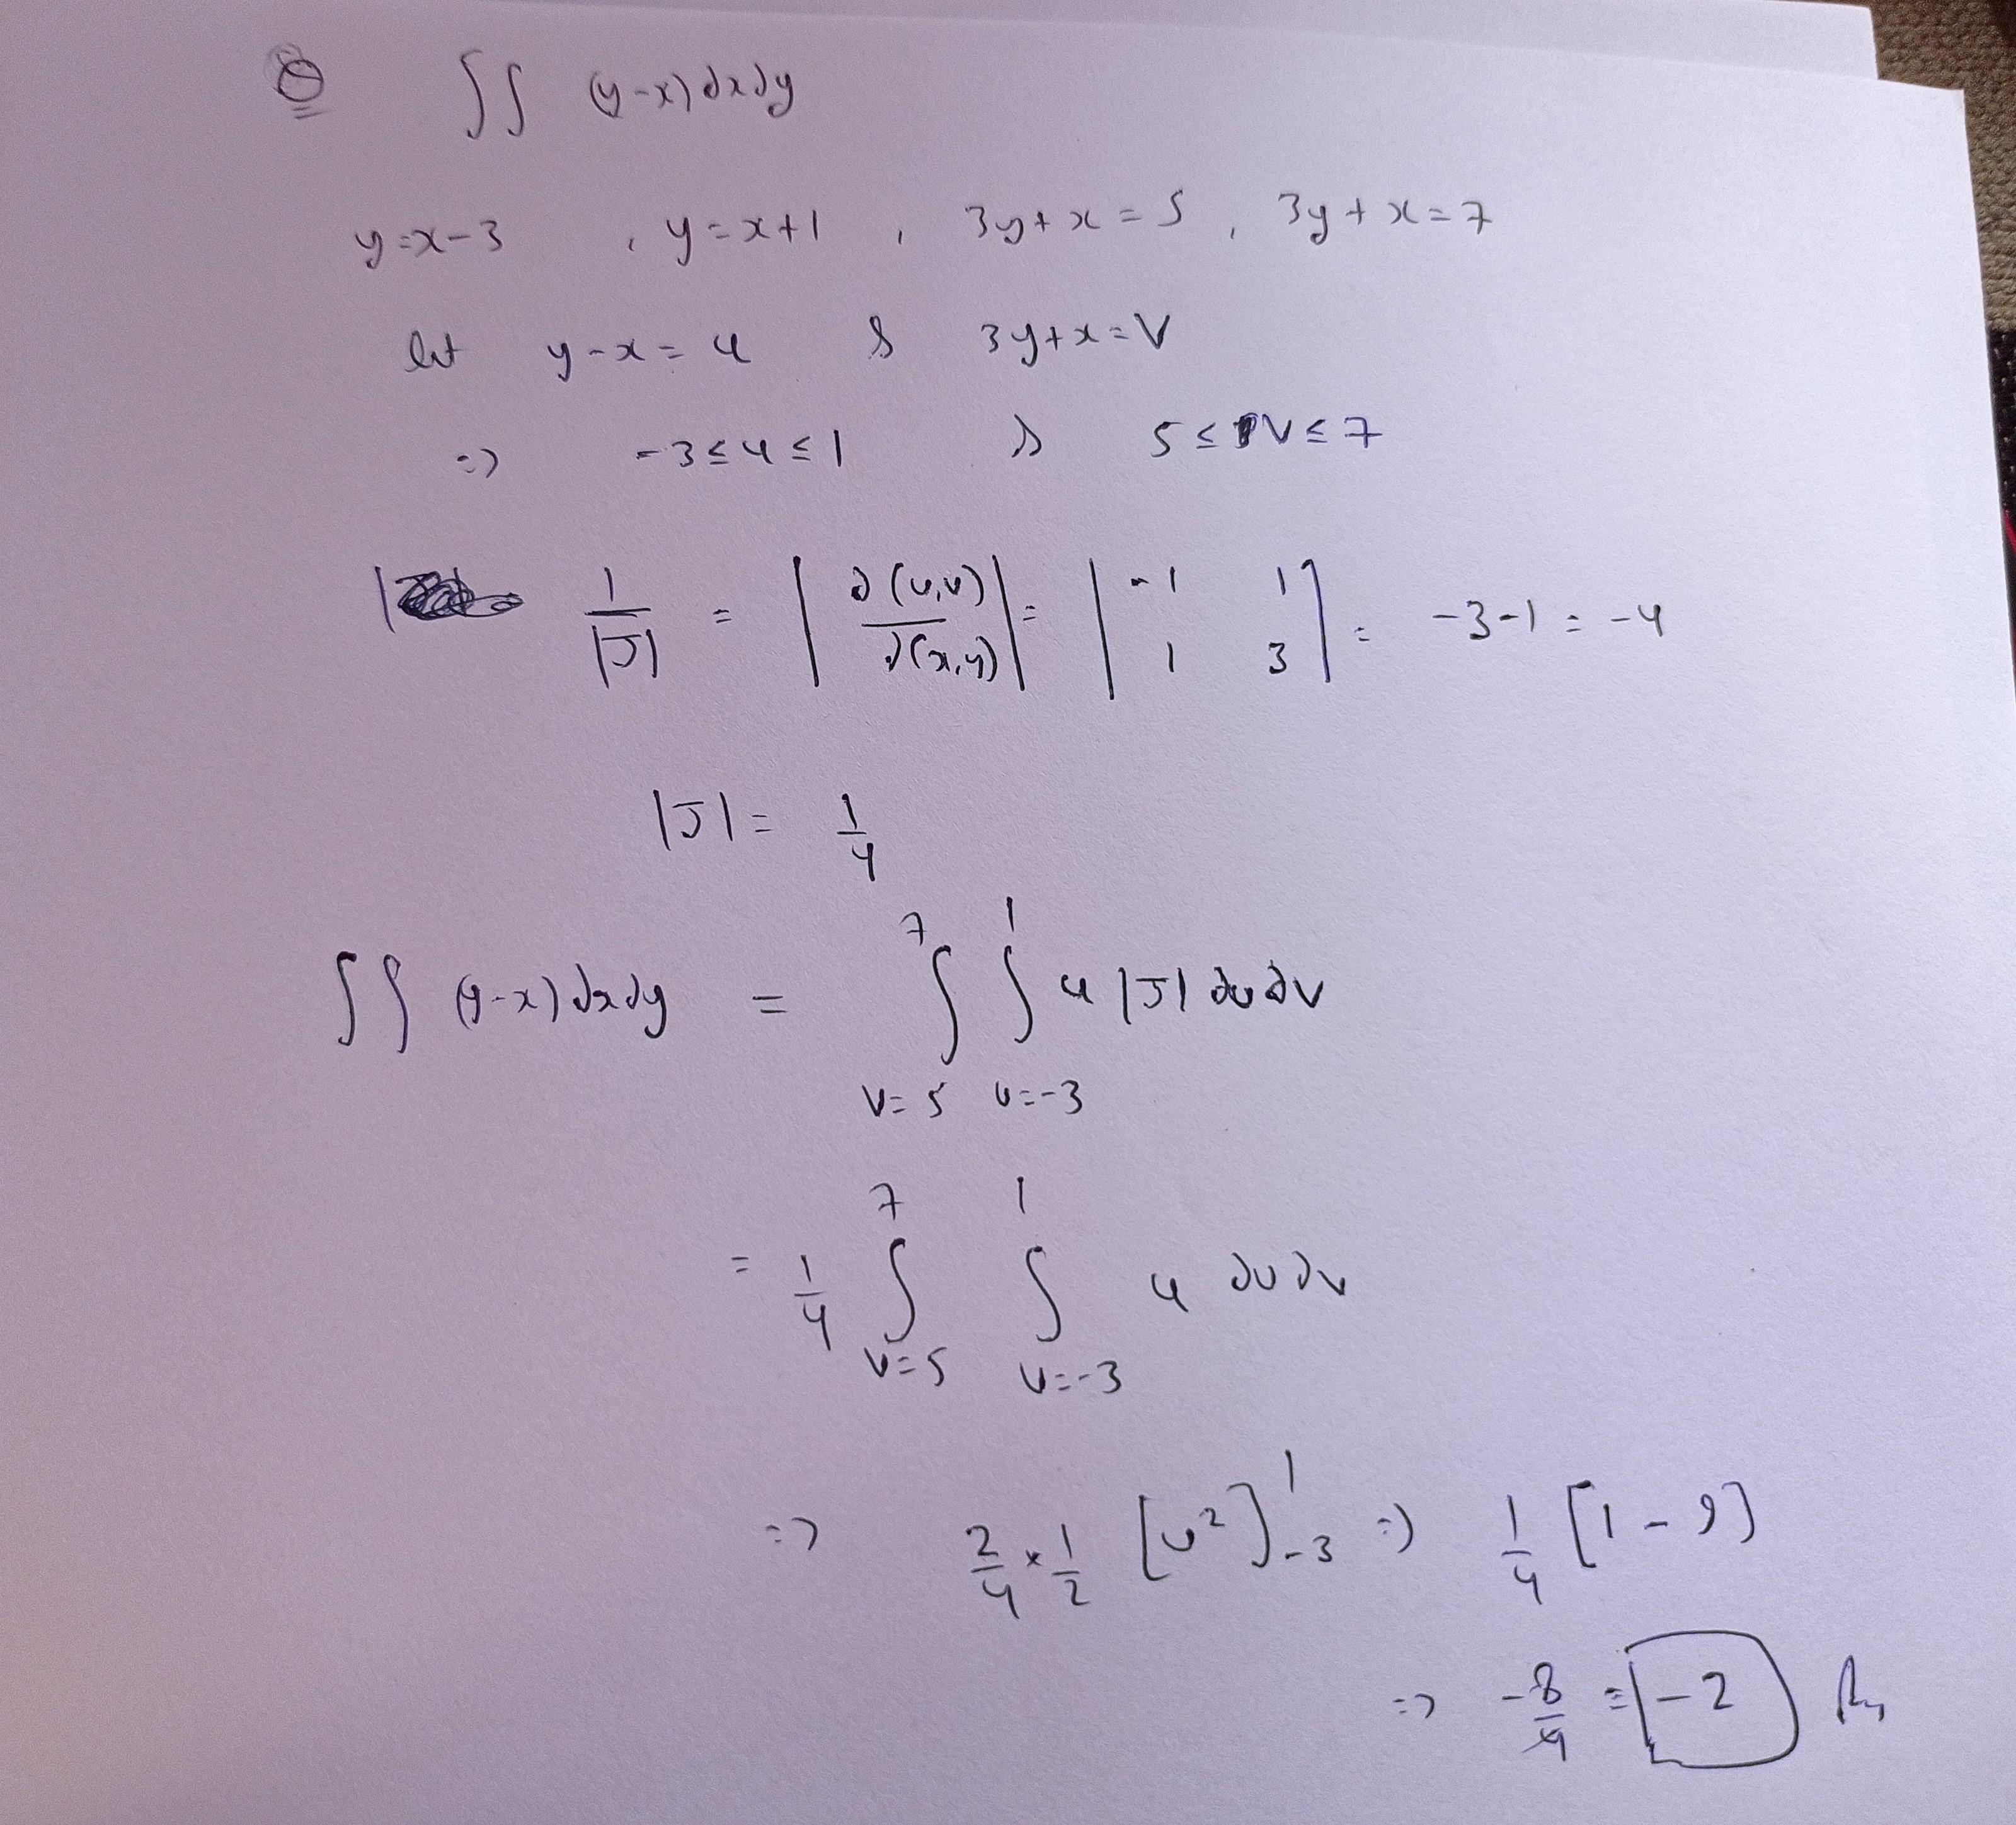 Q ∫∫ (y-x) dxdy
y=x-3 , y=x+1 , 3y+x=5 , 3y+x=7
let y-x=u & 3y+x=v
=> -3≤u≤1 & 5≤v≤7
1/|J| = |∂(u,v)/∂(x,y)| = |-1 1; 1 3| = -3-1 = -4
|J| = 1/4
∫∫ (y-x) dxdy = ∫_{v=5}^{7} ∫_{u=-3}^{1} u |J| du dv
= 1/4 ∫_{v=5}^{7} ∫_{u=-3}^{1} u du dv
=> 2/4 × 1/2 [u²]_{-3}^{1} => 1/4 [1-9]
=> -8/4 = -2